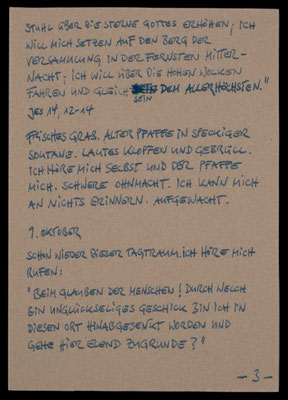 STUHL ÜBER DIE STERNE GOTTES ERHÖHEN; ICH
WILL MICH SETZEN AUF DEN BERG DER
VERSAMMLUNG IN DER FERNSTEN MITTER-
NACHT; ICH WILL ÜBER DIE HOHEN WOLKEN
FAHREN UND GLEICH DEM ALLERHÖCHSTEN."
SEIN
JES 14, 12-14
FRISCHES GRAB. ALTER PFAFFE IN SPECKIGER
SOUTANE. LAUTES KLOPFEN UND GEBRÜLL.
ICH HÖRE MICH SELBST UND DER PFAFFE
MICH. SCHWERE OHNMACHT. ICH KANN MICH
AN NICHTS ERINNERN. AUFGEWACHT.
1. OKTOBER
SCHON WIEDER DIESER TAGTRAUM. ICH HÖRE MICH
RUFEN:
"BEIM GLAUBEN DER MENSCHEN! DURCH WELCH
EIN UNGLÜCKSELIGES GESCHICK BIN ICH IN
DIESEN ORT HINABGESENKT WORDEN UND
GEHE HIER ELEND ZUGRUNDE?"
- 3 -